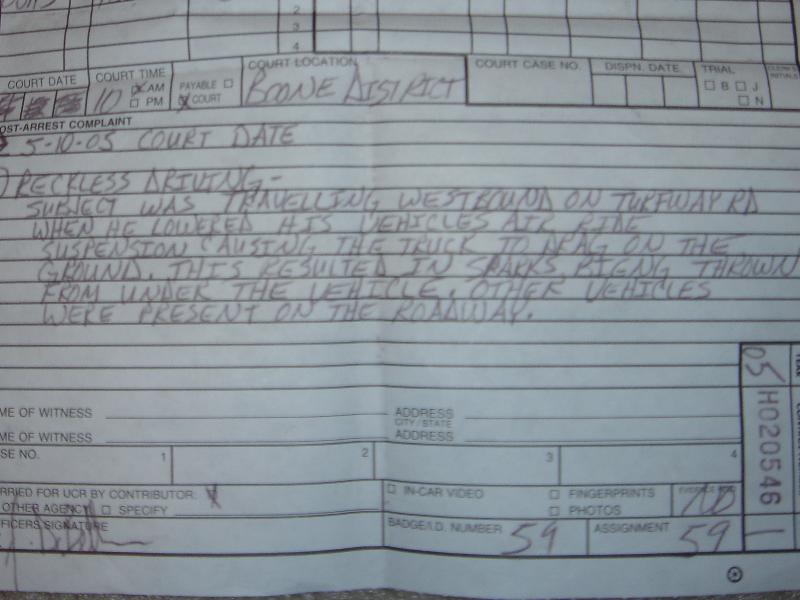 2
3
4
COURT DATE COURT TIME 10 AM PM PAYABLE COURT COURT LOCATION BOONE DISTRICT COURT CASE NO. DISPN. DATE TRIAL B J N CLERK'S INITIALS
OST-ARREST COMPLAINT
5-10-05 COURT DATE
) RECKLESS DRIVING-
SUBJECT WAS TRAVELLING WESTBOUND ON TURFWAY RD
WHEN HE LOWERED HIS VEHICLES AIR RIDE
SUSPENSION CAUSING THE TRUCK TO DRAG ON THE
GROUND. THIS RESULTED IN SPARKS BIENG THROWN
FROM UNDER THE VEHICLE. OTHER VEHICLES
WERE PRESENT ON THE ROADWAY.
05 H020546 1
ME OF WITNESS ADDRESS
CITY/STATE
ME OF WITNESS ADDRESS
SE NO. 1 2 3 4
RRIED FOR UCR BY CONTRIBUTOR: IN-CAR VIDEO FINGERPRINTS
OTHER AGENCY SPECIFY PHOTOS
FICERS SIGNATURE BADGE/I.D. NUMBER 59 ASSIGNMENT 59